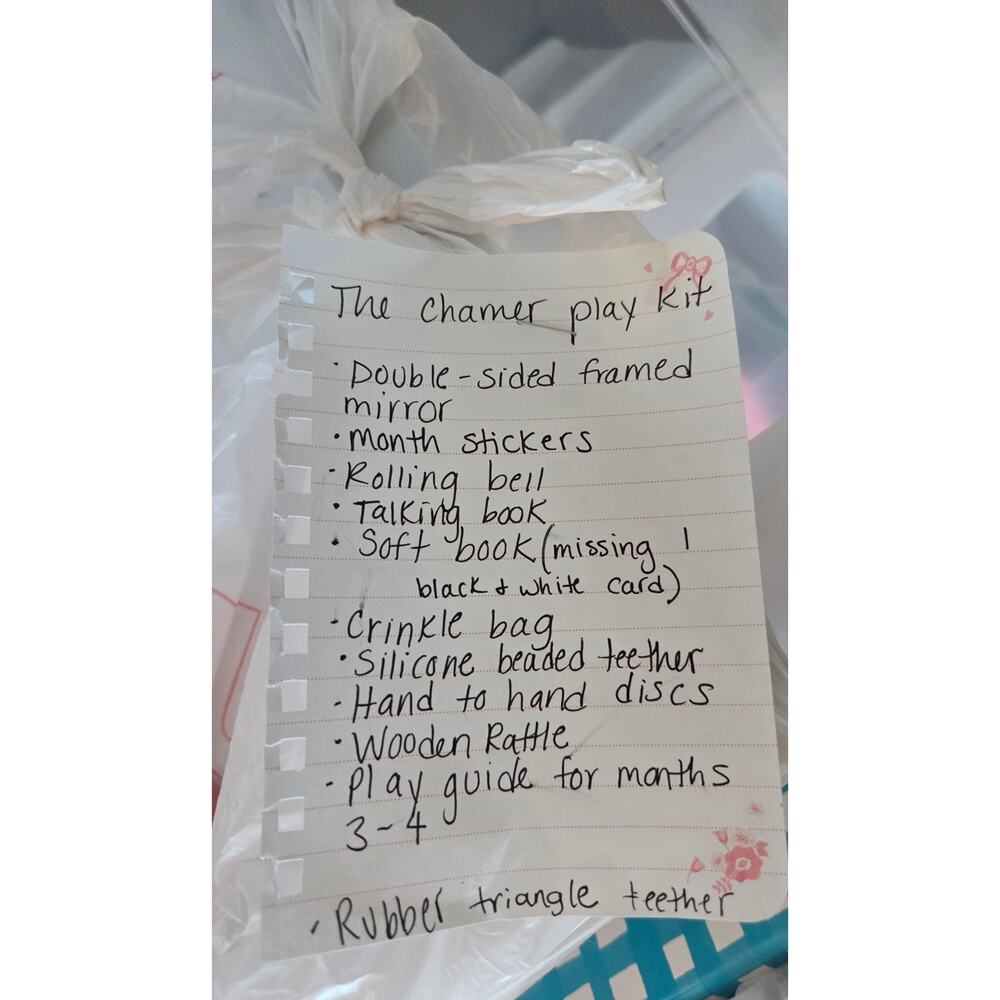 The Chamer play kit
· Double-sided framed
mirror
· month stickers
· Rolling bell
· Talking book
· Soft book (missing 1
black & white card)
· Crinkle bag
· Silicone beaded teether
- Hand to hand discs
· Wooden Rattle
- Play guide for months
3-4
· Rubber triangle teether